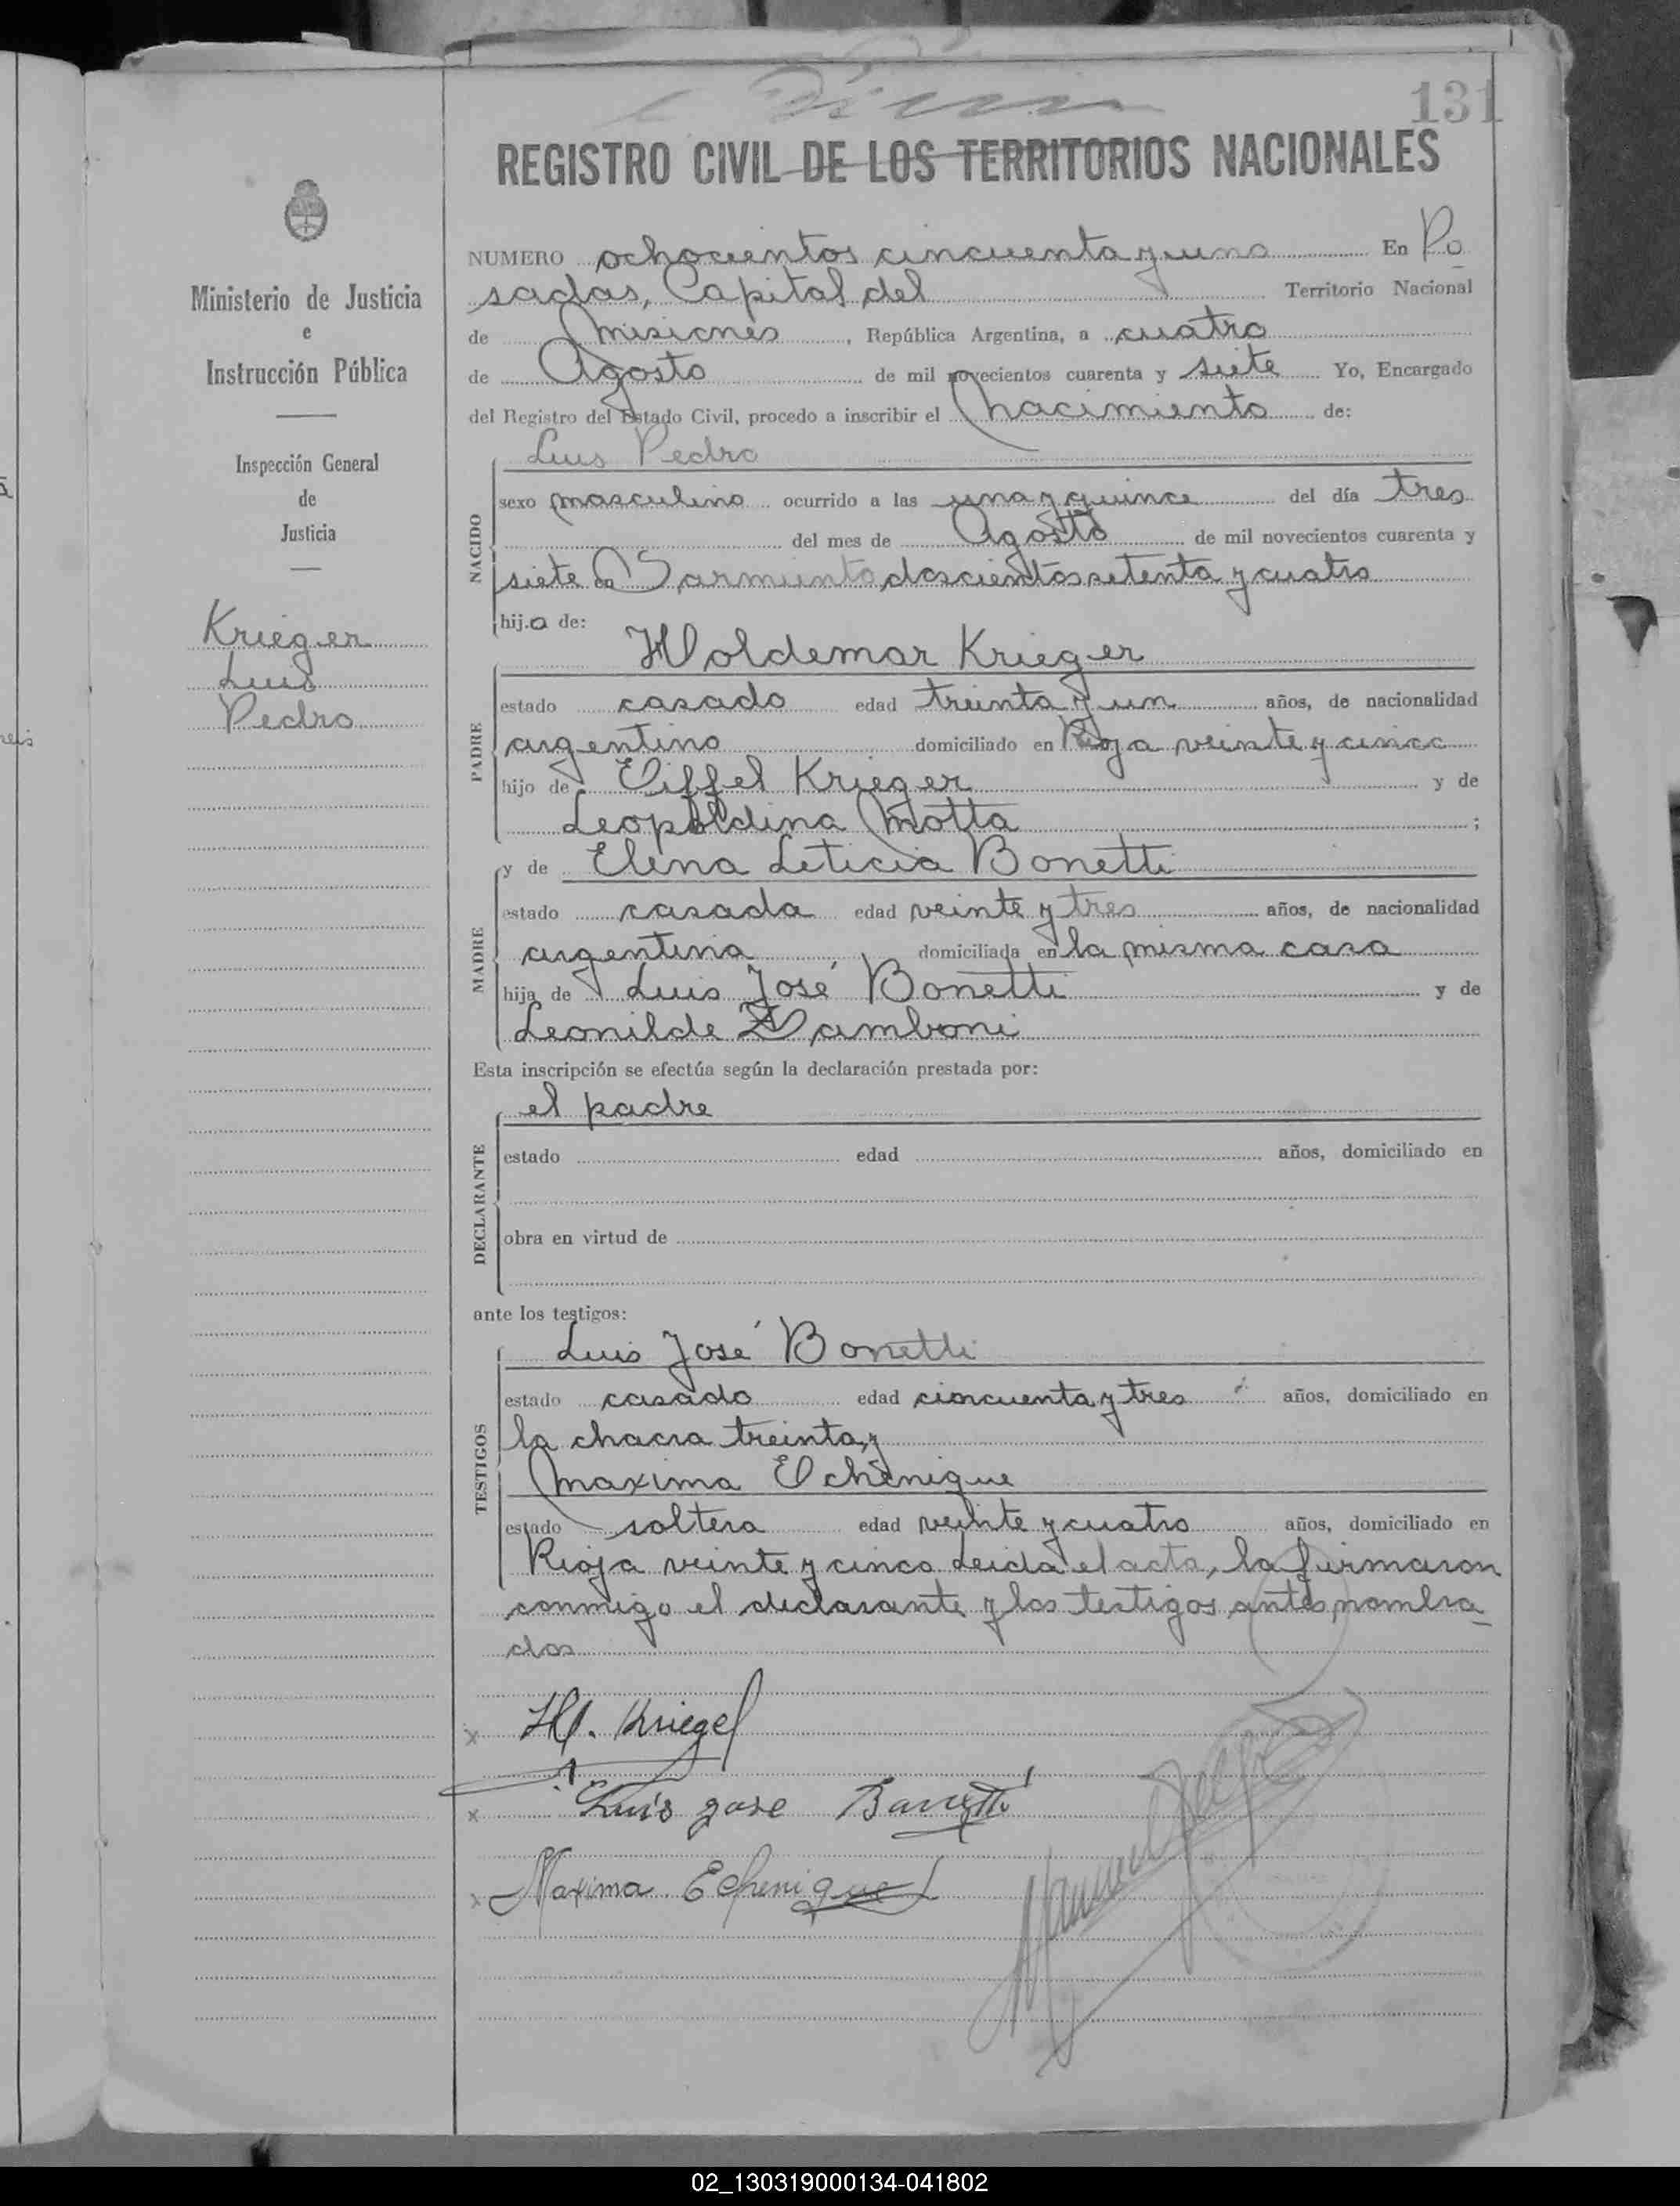 131
REGISTRO CIVIL DE LOS TERRITORIOS NACIONALES
Ministerio de Justicia
e
Instrucción Pública
Inspección General
de
Justicia
Krieger
Luis
Pedro
NUMERO ochocientos cincuenta y uno En Po
sadas, Capital del Territorio Nacional
de Misiones, República Argentina, a cuatro
de Agosto de mil novecientos cuarenta y siete Yo, Encargado
del Registro del Estado Civil, procedo a inscribir el nacimiento de:
Luis Pedro
NACIDO
sexo masculino ocurrido a las una y quince del día tres
del mes de Agosto de mil novecientos cuarenta y
siete en Sarmiento doscientos setenta y cuatro
hijo de:
PADRE
Woldemar Krieger
estado casado edad treinta y un años, de nacionalidad
argentino domiciliado en Rioja veinte y cinco
hijo de Eiffel Krieger y de
Leopoldina Motta;
MADRE
y de Elena Leticia Bonetti
estado casada edad veinte y tres años, de nacionalidad
argentina domiciliada en la misma casa
hija de Luis José Bonetti y de
Leonilde Zamboni
Esta inscripción se efectúa según la declaración prestada por:
DECLARANTE
el padre
estado edad años, domiciliado en
obra en virtud de
ante los testigos:
TESTIGOS
Luis José Bonetti
estado casado edad cincuenta y tres años, domiciliado en
la chacra treinta y
Maxima Echenique
estado soltera edad veinte y cuatro años, domiciliado en
Rioja veinte y cinco. Leida el acta, la firmaron
conmigo el declarante y los testigos antes nombra
dos
x W. Krieger
x Luis Jose Bonetti
x Maxima Echenique
02_130319000134-041802